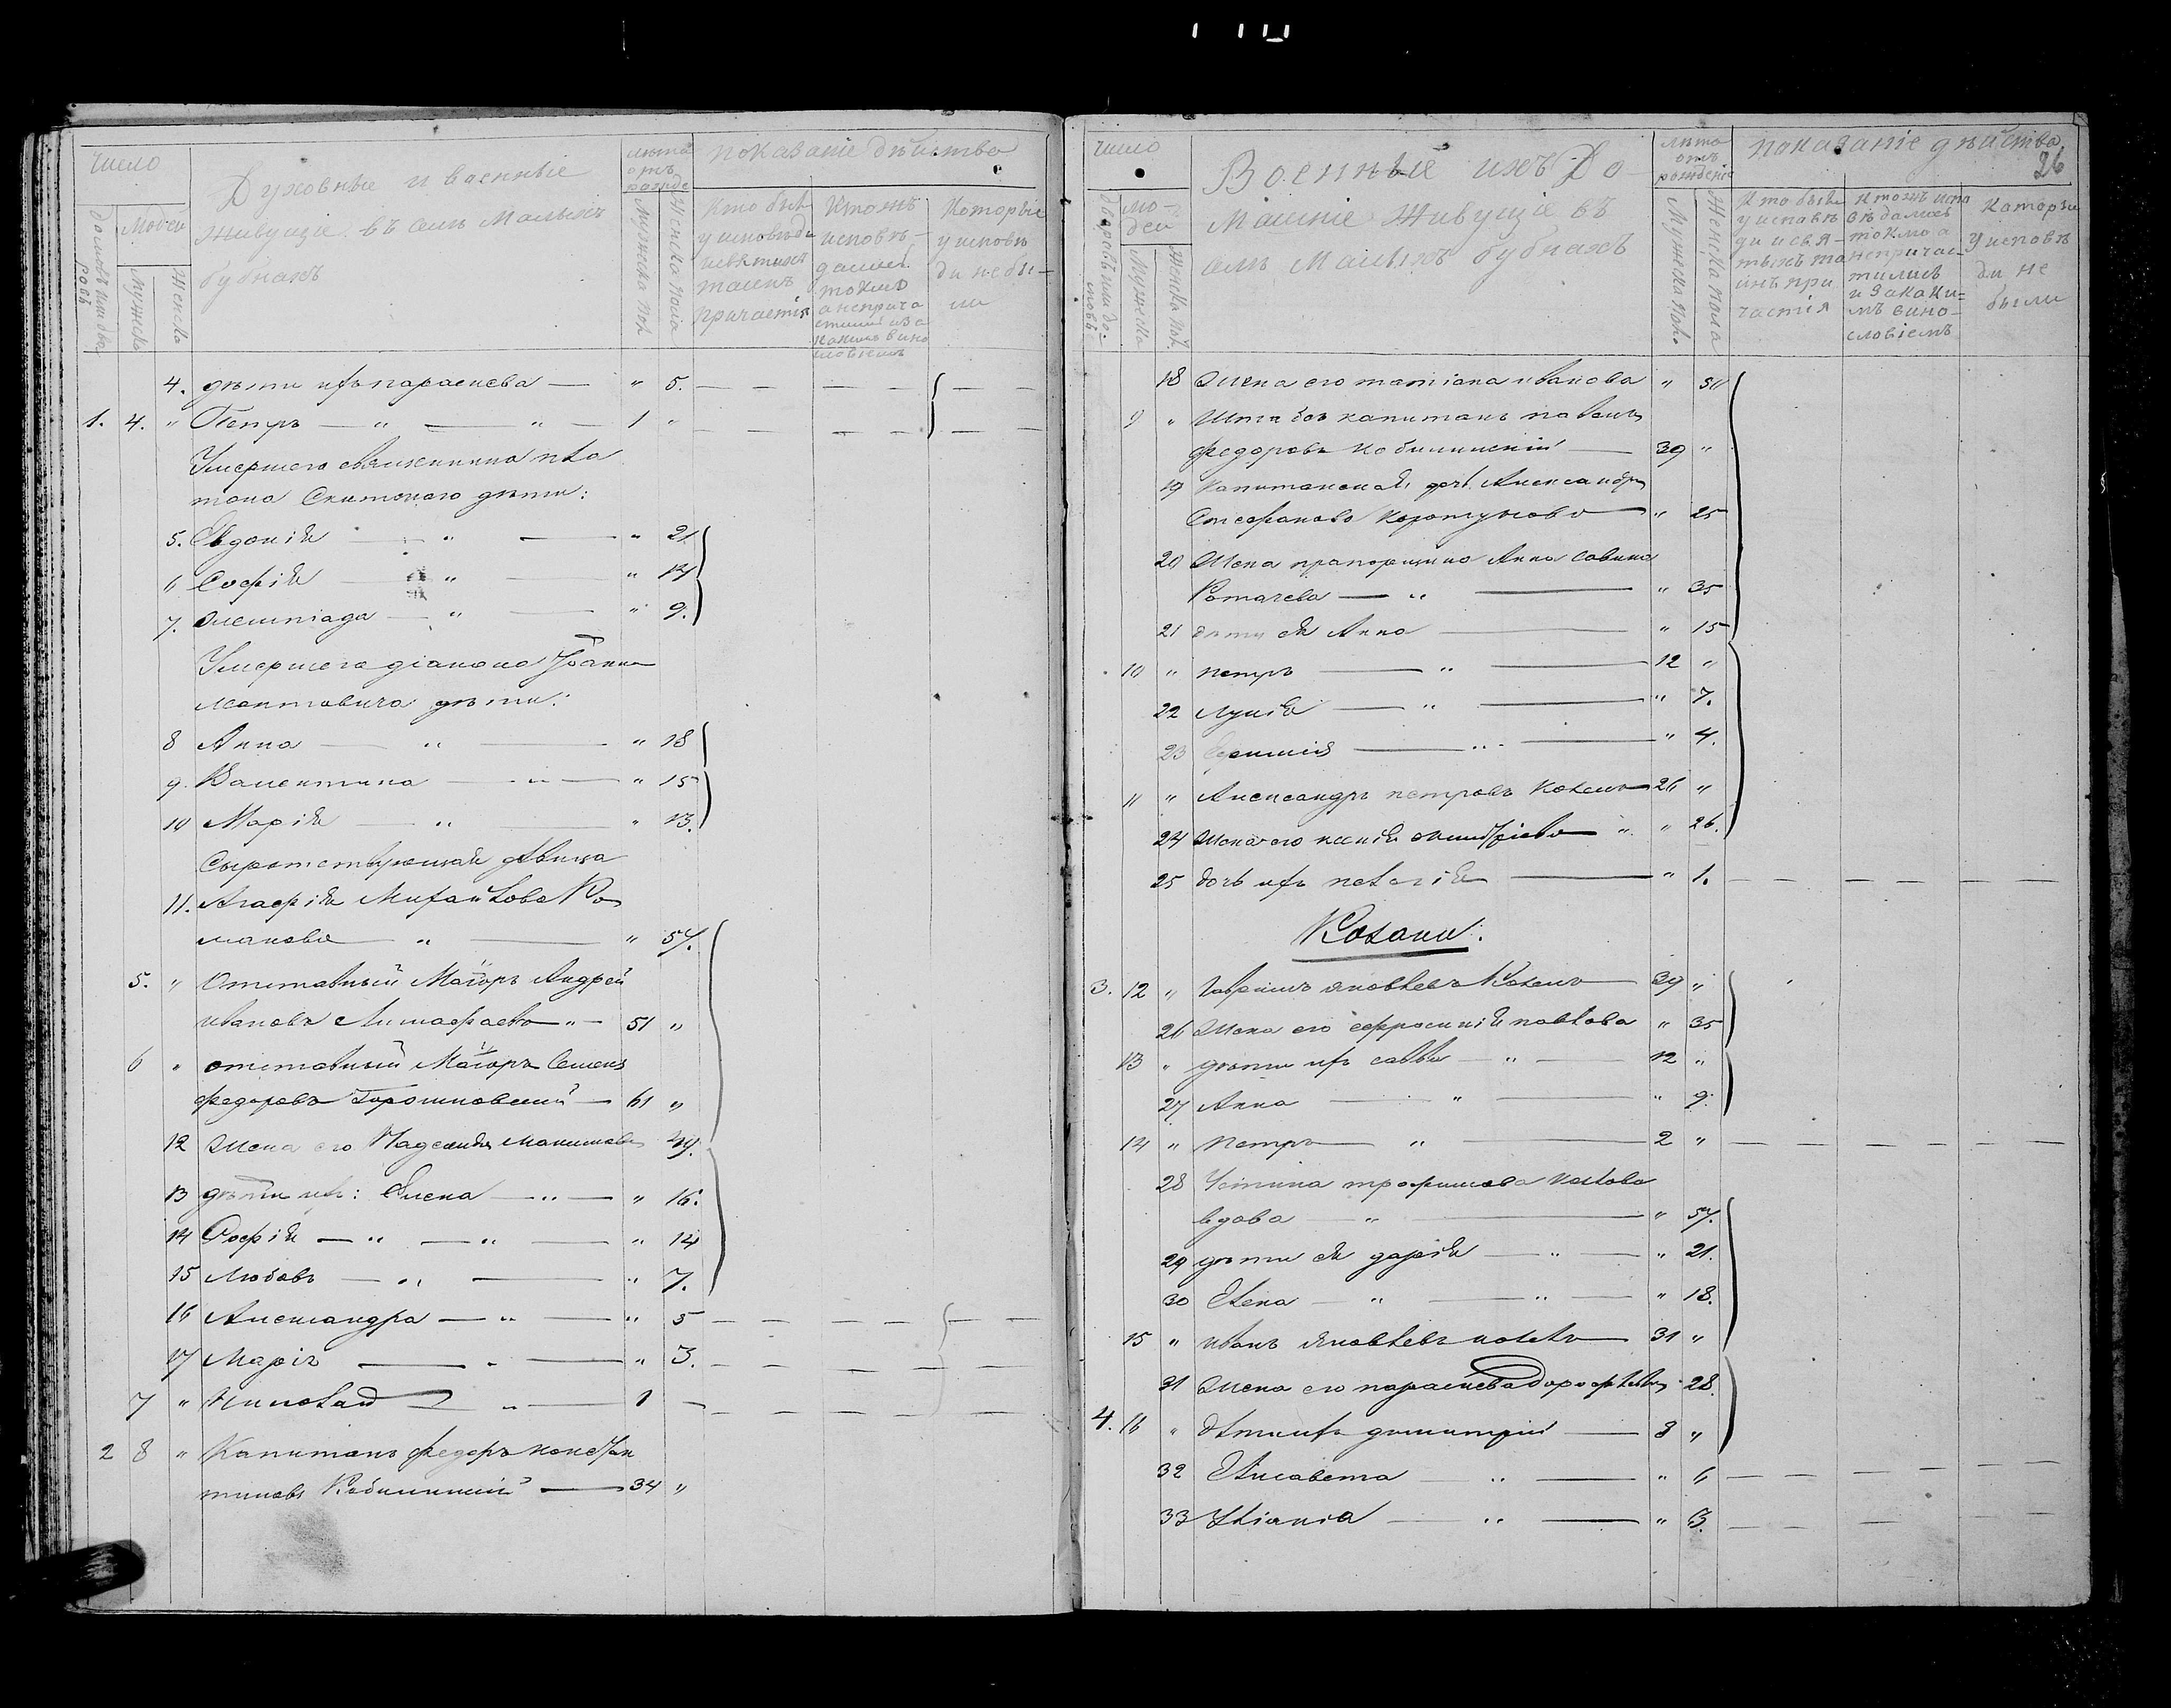 число
Духовные и военные
живущіе въ селѣ Малыхъ
бубнахъ
лѣта отъ рожде
показаніе дѣйства
домовъ или дво ровъ
людей
Мужеска
Женска
Мужеска пол
Женска пола
Кто былъ у исповѣди и святыхъ таинъ причастія
Ктожъ исповѣ- дался токмо а неприча стился и за какимъ вино словіемъ
Которые у исповѣ ди не бы- ли
4. дѣти ихъ параскева — " 5.
1. 4. " Петръ — " — " — 1 "
Умершего священника пла
тона Скитского дѣти:
5. Евдокія — " — " 21
6 Софія — " — " 14
7. Олимпіада — " — " 9.
Умершего діакона Іоанна
дѣти:
8 Анна — " — " 18
9. Валентина — " — " 15
10 Марія — " — " 13.
Сыротствующая дѣвица
11. Агафія Михайлова Ро
манова — " — " 57.
5. " Отставный Маіоръ Андрей
ивановъ — " — 51 "
6 " отставный Маіоръ Семенъ
федоровъ Горошковскій — 61 "
12 Жена его Надежда 49.
13 дѣти ихъ: Елена — " — " 16.
14 Софія — " — " — " 14
15 Любовь — " — " 7.
16 Александра — " — " 5
17 Марія — " — " 3.
7 " Николай — " — 1
2 8 " Капитанъ федоръ констан
тиновъ Кобылинскій — 34 "
26
число
Военные ихъ До
машніе Живущіе въ
селѣ Малыхъ бубнахъ
лѣта отъ рожденія
показаніе дѣйства
дворовъ или до- мовъ
лю- дей
Мужеска
Женска пол.
Мужеска пол.
Женска пола
Кто были у исповѣ ди и свя- тыхъ та инъ при частія
Ктожъ испо вѣдались токмо а непричас- тились и за каки- мъ вино- словіемъ
Которы у исповѣ ди не были
18 Жена его татіана иванова " 30
9 " Штабсъ капитанъ павелъ
федоровъ кобылинскій — 39 "
19 Капитанская дочь Александра
Стефанова — " 25
20 Жена прапорщика Анна Савина
— " — " 35
21 дѣти ея Анна — " 15
10 " петръ — " — 12 "
22 Лукія — " — " 7.
23 — " — " 4.
11 " Александръ петровъ Козелъ 26 "
24 Жена его ксенія " 26.
25 дочь ихъ пелагія — " 1.
Козаки.
3. 12 " Гавріилъ яковлевъ Козелъ 39 "
26 Жена его ефросинія павлова " 35
13 " дѣти ихъ савва — " — 12 "
27 Анна — " — " 9.
14 " Петръ — " — 2 "
28 Устина трофимова козлова
вдова — " — " 57.
29 дѣти ея дарія — " — " 21.
30 Елена — " — " — " 18.
15 " иванъ яковлевъ козелъ — 31 "
31 Жена его параскева дорофѣева 28.
4. 16 " дѣти ихъ димитрій — 8 "
32 Елисавета — " — " 6
33 Уліанія — " — " 3.